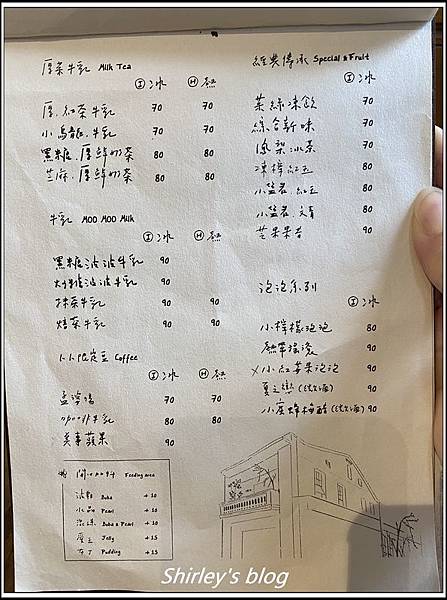 厚茶牛乳 Milk Tea
Ⓘ 冰 Ⓗ 熱
厚.紅茶牛乳 70 70
小烏龍.牛乳 70 70
黑糖.厚鮮奶茶 80 80
芝麻.厚鮮奶茶 80 80
牛乳 MOO MOO Milk
Ⓘ 冰 Ⓗ 熱
黑糖波波牛乳 90
炒糖波波牛乳 90
抹茶牛乳 90 90
焙茶牛乳 90 90
Coffee
Ⓘ 冰 Ⓗ 熱
70 70
咖啡牛乳 80 80
莫事蘋果 90
開心加料 Feeding area
波霸 Boba +10
小品 Pearl +10
混珠 Boba & Pearl +10
Jelly +15
布丁 Pudding +15
經典傳承 Special & Fruit
Ⓘ 冰
茶綠凍飲 70
綜合新味 70
鳳梨冰茶 70
凍檸紅玉 80
小盆君.紅玉 80
小盆君.文青 80
芒果果者 90
泡泡系列
Ⓘ 冰
小檸檬泡泡 80
90
小紅莓果泡泡 80
夏之戀 (微酒) 90
小度蜂梅醋 (微酒) 90
Shirley's blog